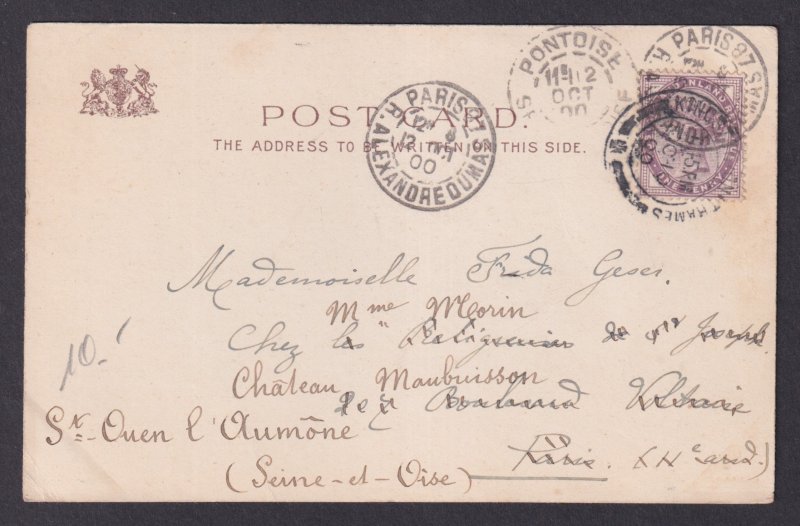 POST CARD.
THE ADDRESS TO BE WRITTEN ON THIS SIDE.
PARIS 87
12 OCT
00
R. ALEXANDRE DUMAS
PONTOISE
11E 12
OCT
00
PARIS 87
KINGSTON
THAMES
00
ONE PENNY
Mademoiselle Frida Geser.
Mme Morin
Chez les Religieuses de St Joseph
Château Maubuisson
Boulevard Voltaire
St-Ouen l'Aumône
Paris.
(Seine-et-Oise)
10.-